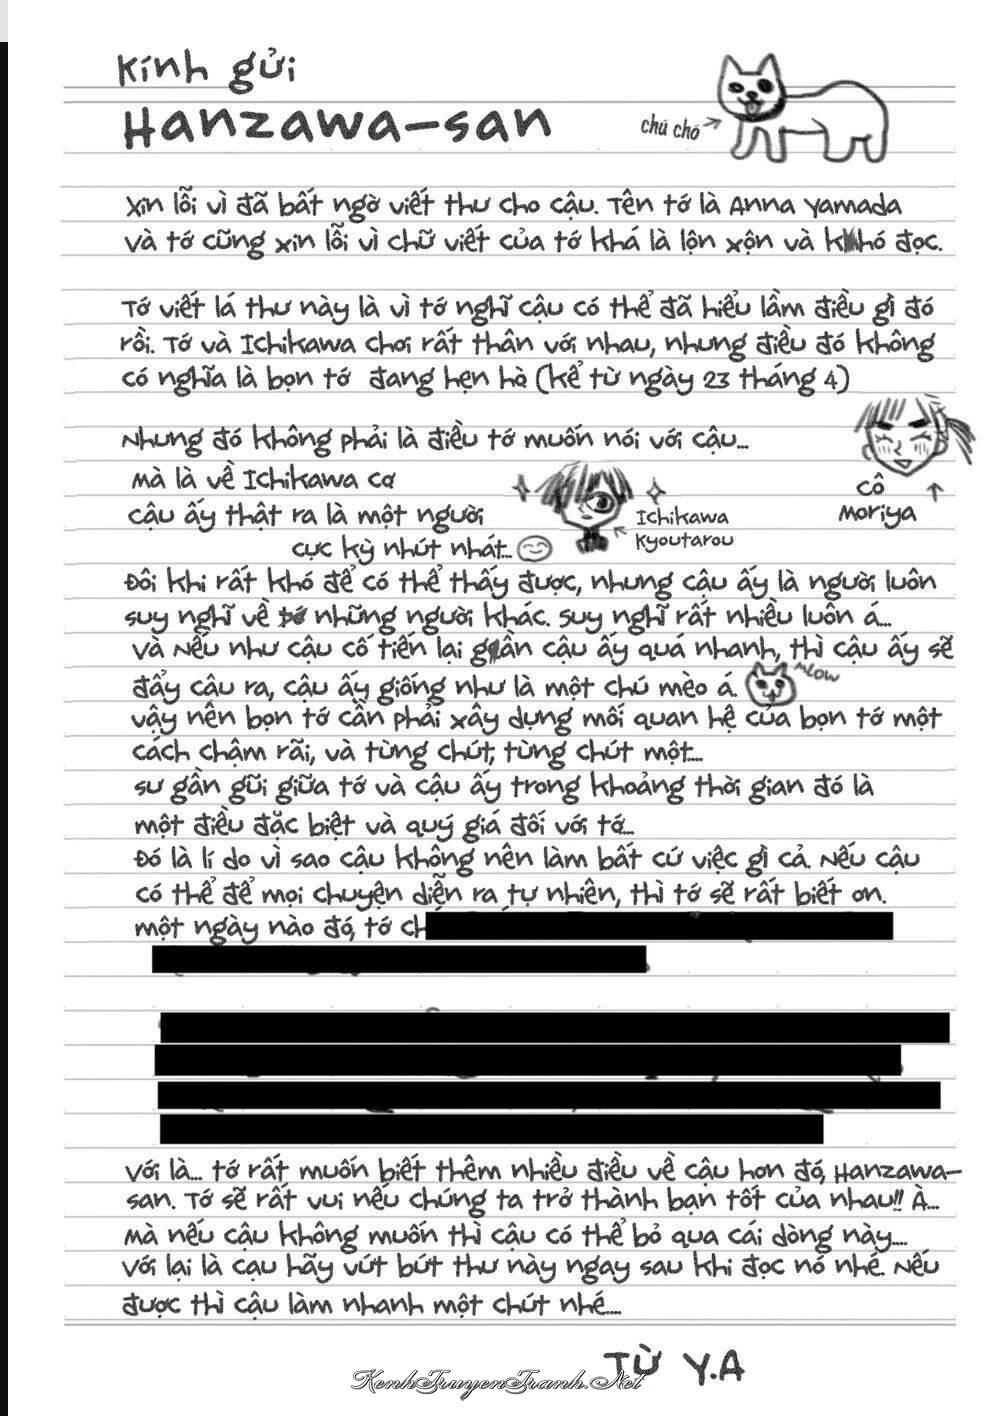 Kính gửi
Hanzawa-san
chú chó
Xin lỗi vì đã bất ngờ viết thư cho cậu. Tên tớ là Anna Yamada
và tớ cũng xin lỗi vì chữ viết của tớ khá là lộn xộn và khó đọc.
Tớ viết lá thư này là vì tớ nghĩ cậu có thể đã hiểu lầm điều gì đó
rồi. Tớ và Ichikawa chơi rất thân với nhau, nhưng điều đó không
có nghĩa là bọn tớ đang hẹn hò (kể từ ngày 23 tháng 4)
Nhưng đó không phải là điều tớ muốn nói với cậu...
mà là về Ichikawa cơ
cậu ấy thật ra là một người
cực kỳ nhút nhát...
Ichikawa
Kyoutarou
cô
Moriya
Đôi khi rất khó để có thể thấy được, nhưng cậu ấy là người luôn
suy nghĩ về những người khác. Suy nghĩ rất nhiều luôn á...
và Nếu như cậu cố tiến lại gần cậu ấy quá nhanh, thì cậu ấy sẽ
đẩy cậu ra, cậu ấy giống như là một chú mèo á.
Meow
vậy nên bọn tớ cần phải xây dựng mối quan hệ của bọn tớ một
cách chậm rãi, và từng chút, từng chút một....
sự gần gũi giữa tớ và cậu ấy trong khoảng thời gian đó là
một điều đặc biệt và quý giá đối với tớ...
Đó là lí do vì sao cậu không nên làm bất cứ việc gì cả. Nếu cậu
có thể để mọi chuyện diễn ra tự nhiên, thì tớ sẽ rất biết ơn.
một ngày nào đó, tớ ch
Với là... tớ rất muốn biết thêm nhiều điều về cậu hơn đó, Hanzawa-
san. Tớ sẽ rất vui nếu chúng ta trở thành bạn tốt của nhau!! À...
mà nếu cậu không muốn thì cậu có thể bỏ qua cái dòng này....
Với lại là cạu hãy vứt bứt thư này ngay sau khi đọc nó nhé. Nếu
được thì cậu làm nhanh một chút nhé....
Từ Y.A
KenhTruyenTranh.Net